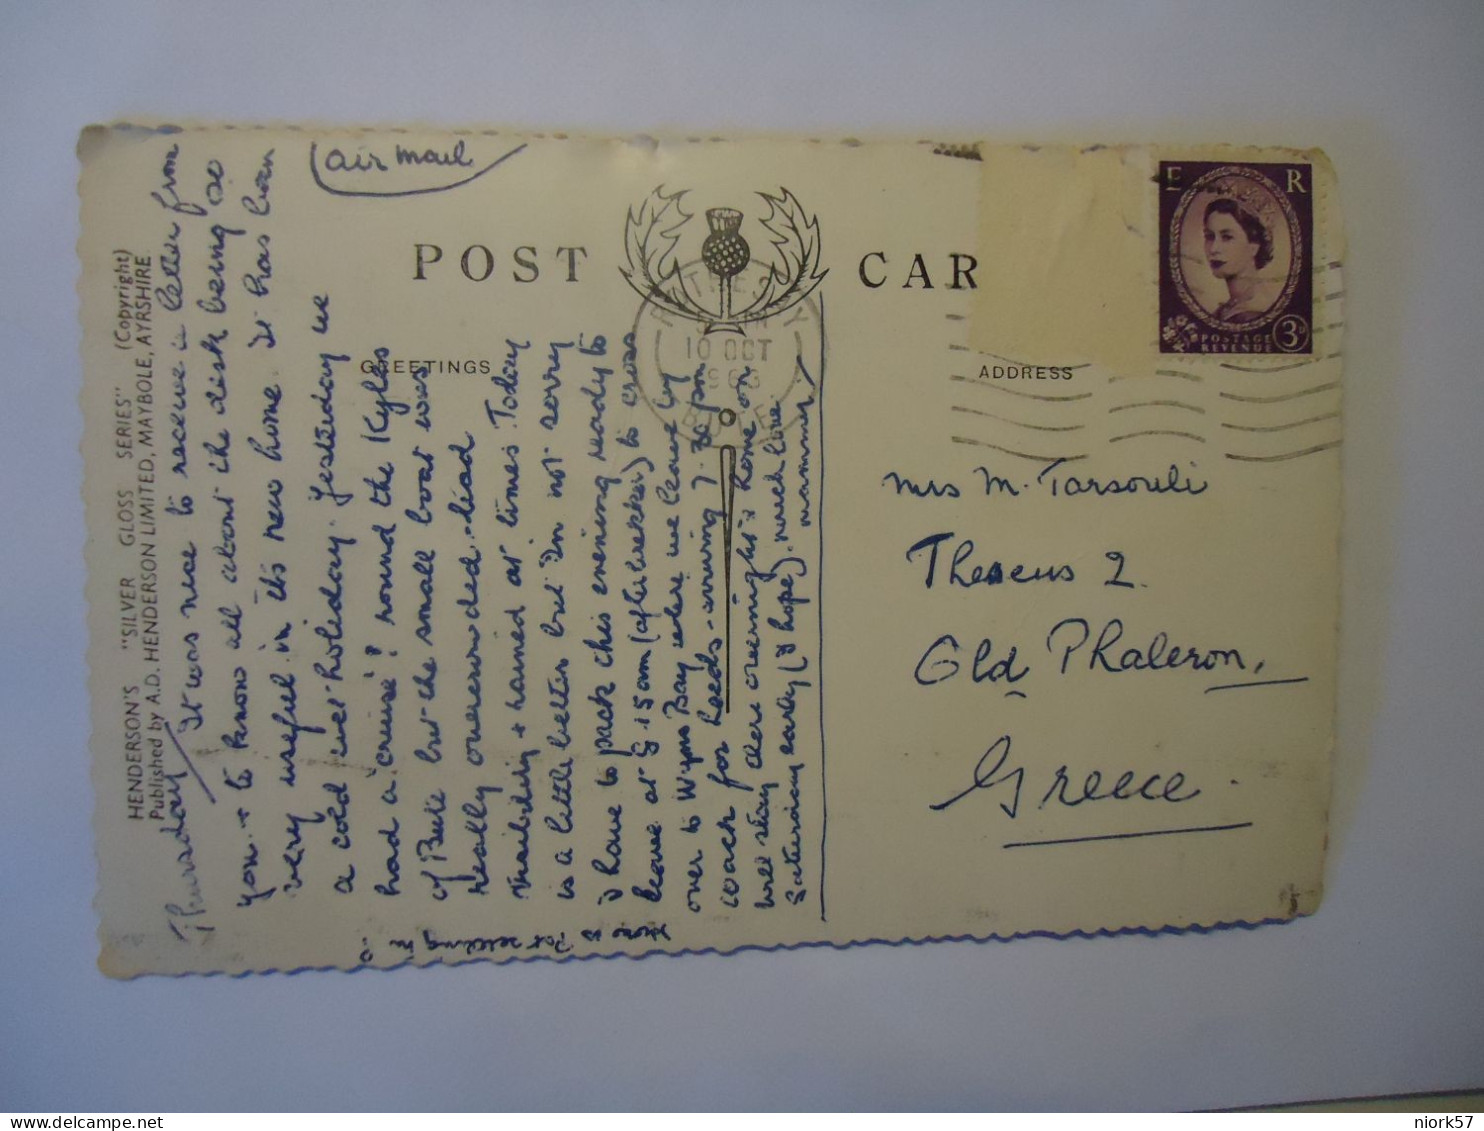 HENDERSON'S "SILVER GLOSS SERIES" (Copyright)
Published by A.D. HENDERSON LIMITED, MAYBOLE, AYRSHIRE
air mail
POST CAR
GREETINGS
ADDRESS
E R
POSTAGE
REVENUE
3D
ROTHESAY
10 OCT
BUTE
Thursday
It was nice to receive a letter from
you & to know all about the disk being so
very useful in its new home. It has been
a cold wet holiday. Yesterday we
had a 'cruise'! round the Kyles
of Bute but the small boat was
really overcrowded
& rained at times Today
is a little better but I'm not sorry
I have to pack this evening ready to
leave at 8.15 am to cross
over to Wyms Bay where we leave by
coach for Leeds - arriving 7-30 pm
will stay there overnight & home on
Saturday early (I hope). much love.
mammy
Love to Pat
Mrs M. Tarsouli
Theseus 2
Old Phaleron,
Greece.
niork57